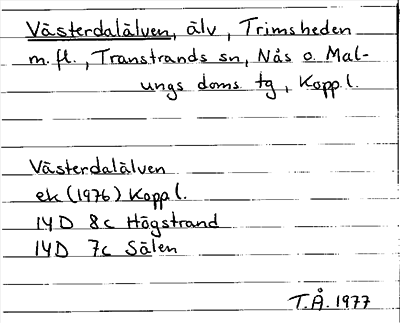 Västerdalälven, älv, Trimsheden
m.fl., Transtrands sn, Nås o. Mal-
ungs doms. tg, Kopp l.
Västerdalälven
ek (1976) Kopp l.
14D 8c Högstrand
14D 7c Sälen
T.Å. 1977